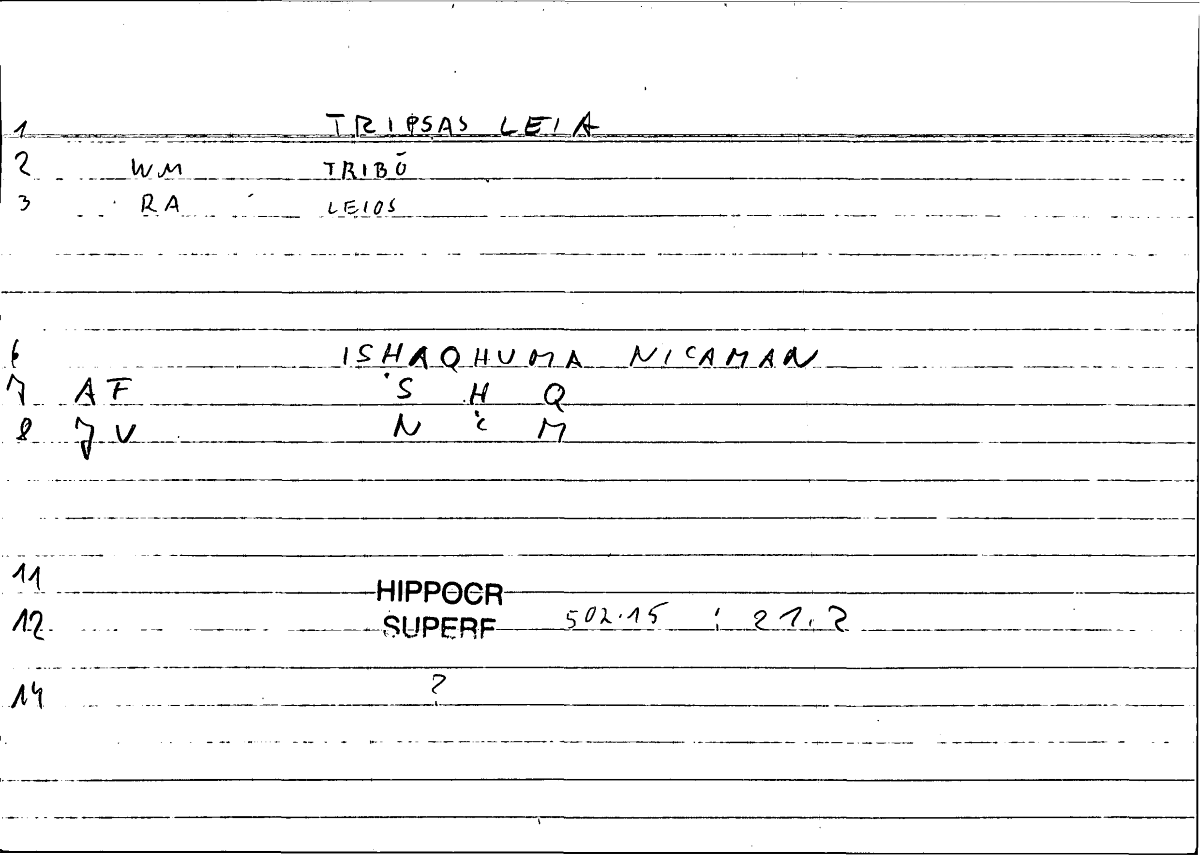 1 TRIPSAS LEIA
2 WM TRIBŌ
3 RA LEIOS
6 ISHAQHUMA NICAMAN
7 AF 'S H Q
8 JV N ʿ M
11 HIPPOCR
12 SUPERF 502.15 ; 21.2
14 ?